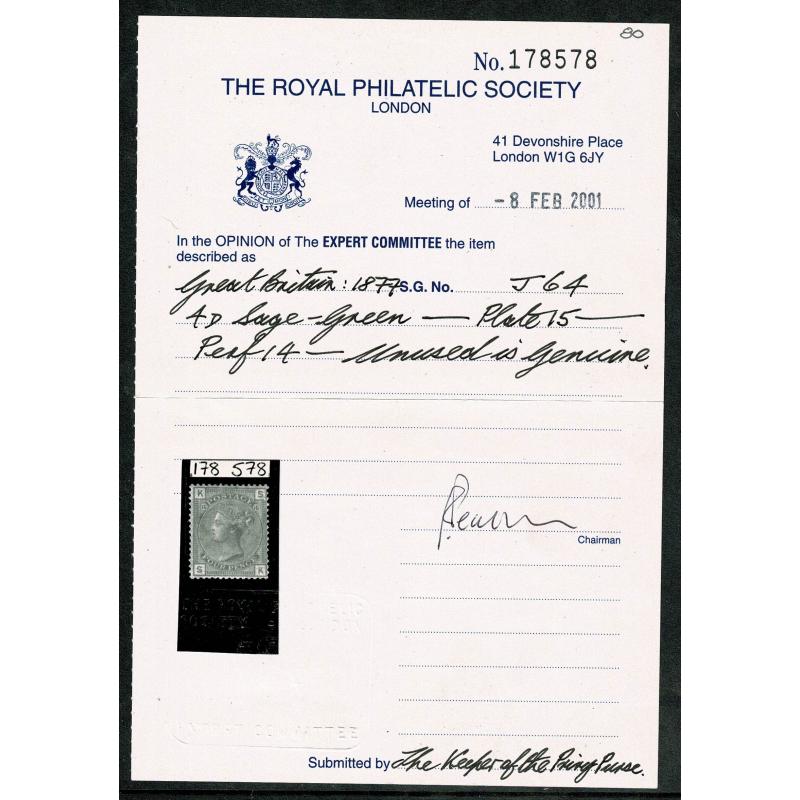 80
No. 178578
THE ROYAL PHILATELIC SOCIETY
LONDON
41 Devonshire Place
London W1G 6JY
Meeting of - 8 FEB 2001
In the OPINION of The EXPERT COMMITTEE the item
described as
Great Britain: 1877 S.G. No. J64
4D Sage-Green — Plate 15 —
Perf 14 — Unused is Genuine.
178 578
K S
POSTAGE
FOUR PENCE
S K
Chairman
EXPERT COMMITTEE
Submitted by The Keeper of the Privy Purse.